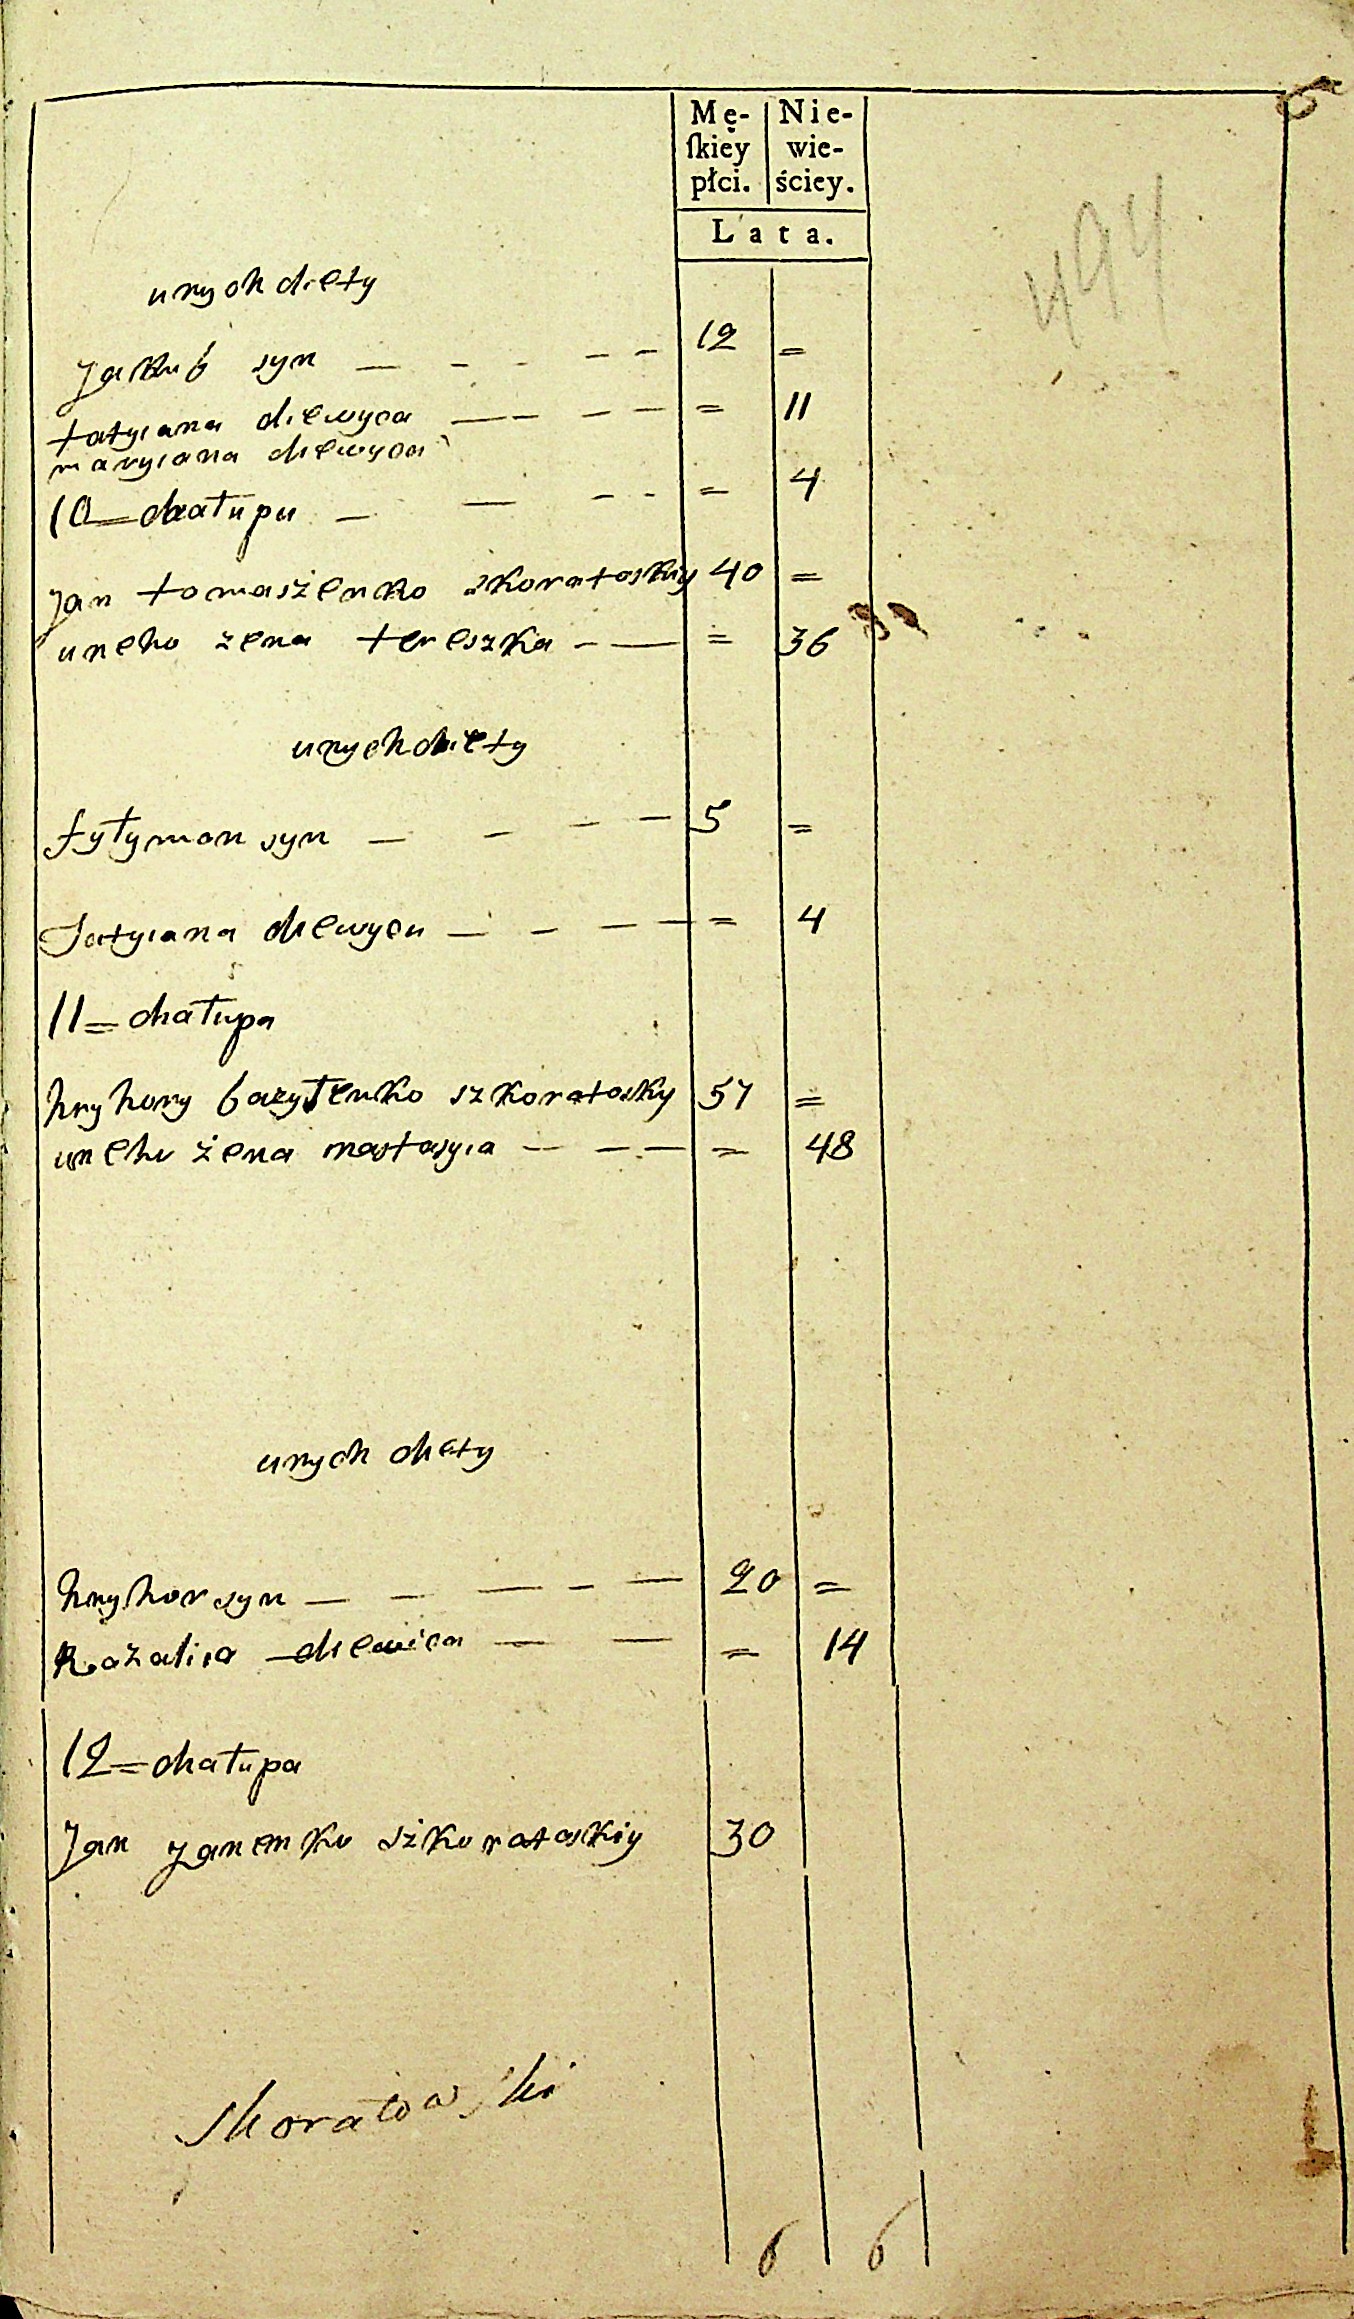 6
Mę- Nie-
ſkiey wie-
płci. ściey.
Lata.
494
unych diety
Jakub syn — - - - - 12 =
tatyiana diewyca — - - - = 11
maryiana diewyca
10 = chałupa — — - - = 4
Jan tomaszenko szkoratoskiy 40 =
uneho zena tereszka - — = 36
unych diety
fyłymon syn — - - - 5 =
Tatyiana diewyca — - - - = 4
11 = chałupa
hryhory bazyłenko szkoratosky 57 =
uneho żena nastasyia — - - = 48
unych diety
hryhor syn — - — - — 20 =
Rozalia diewica — — = 14
12 = chałupa
Jan Janenko szkoratoskiy 30
Skoratowski
6 6